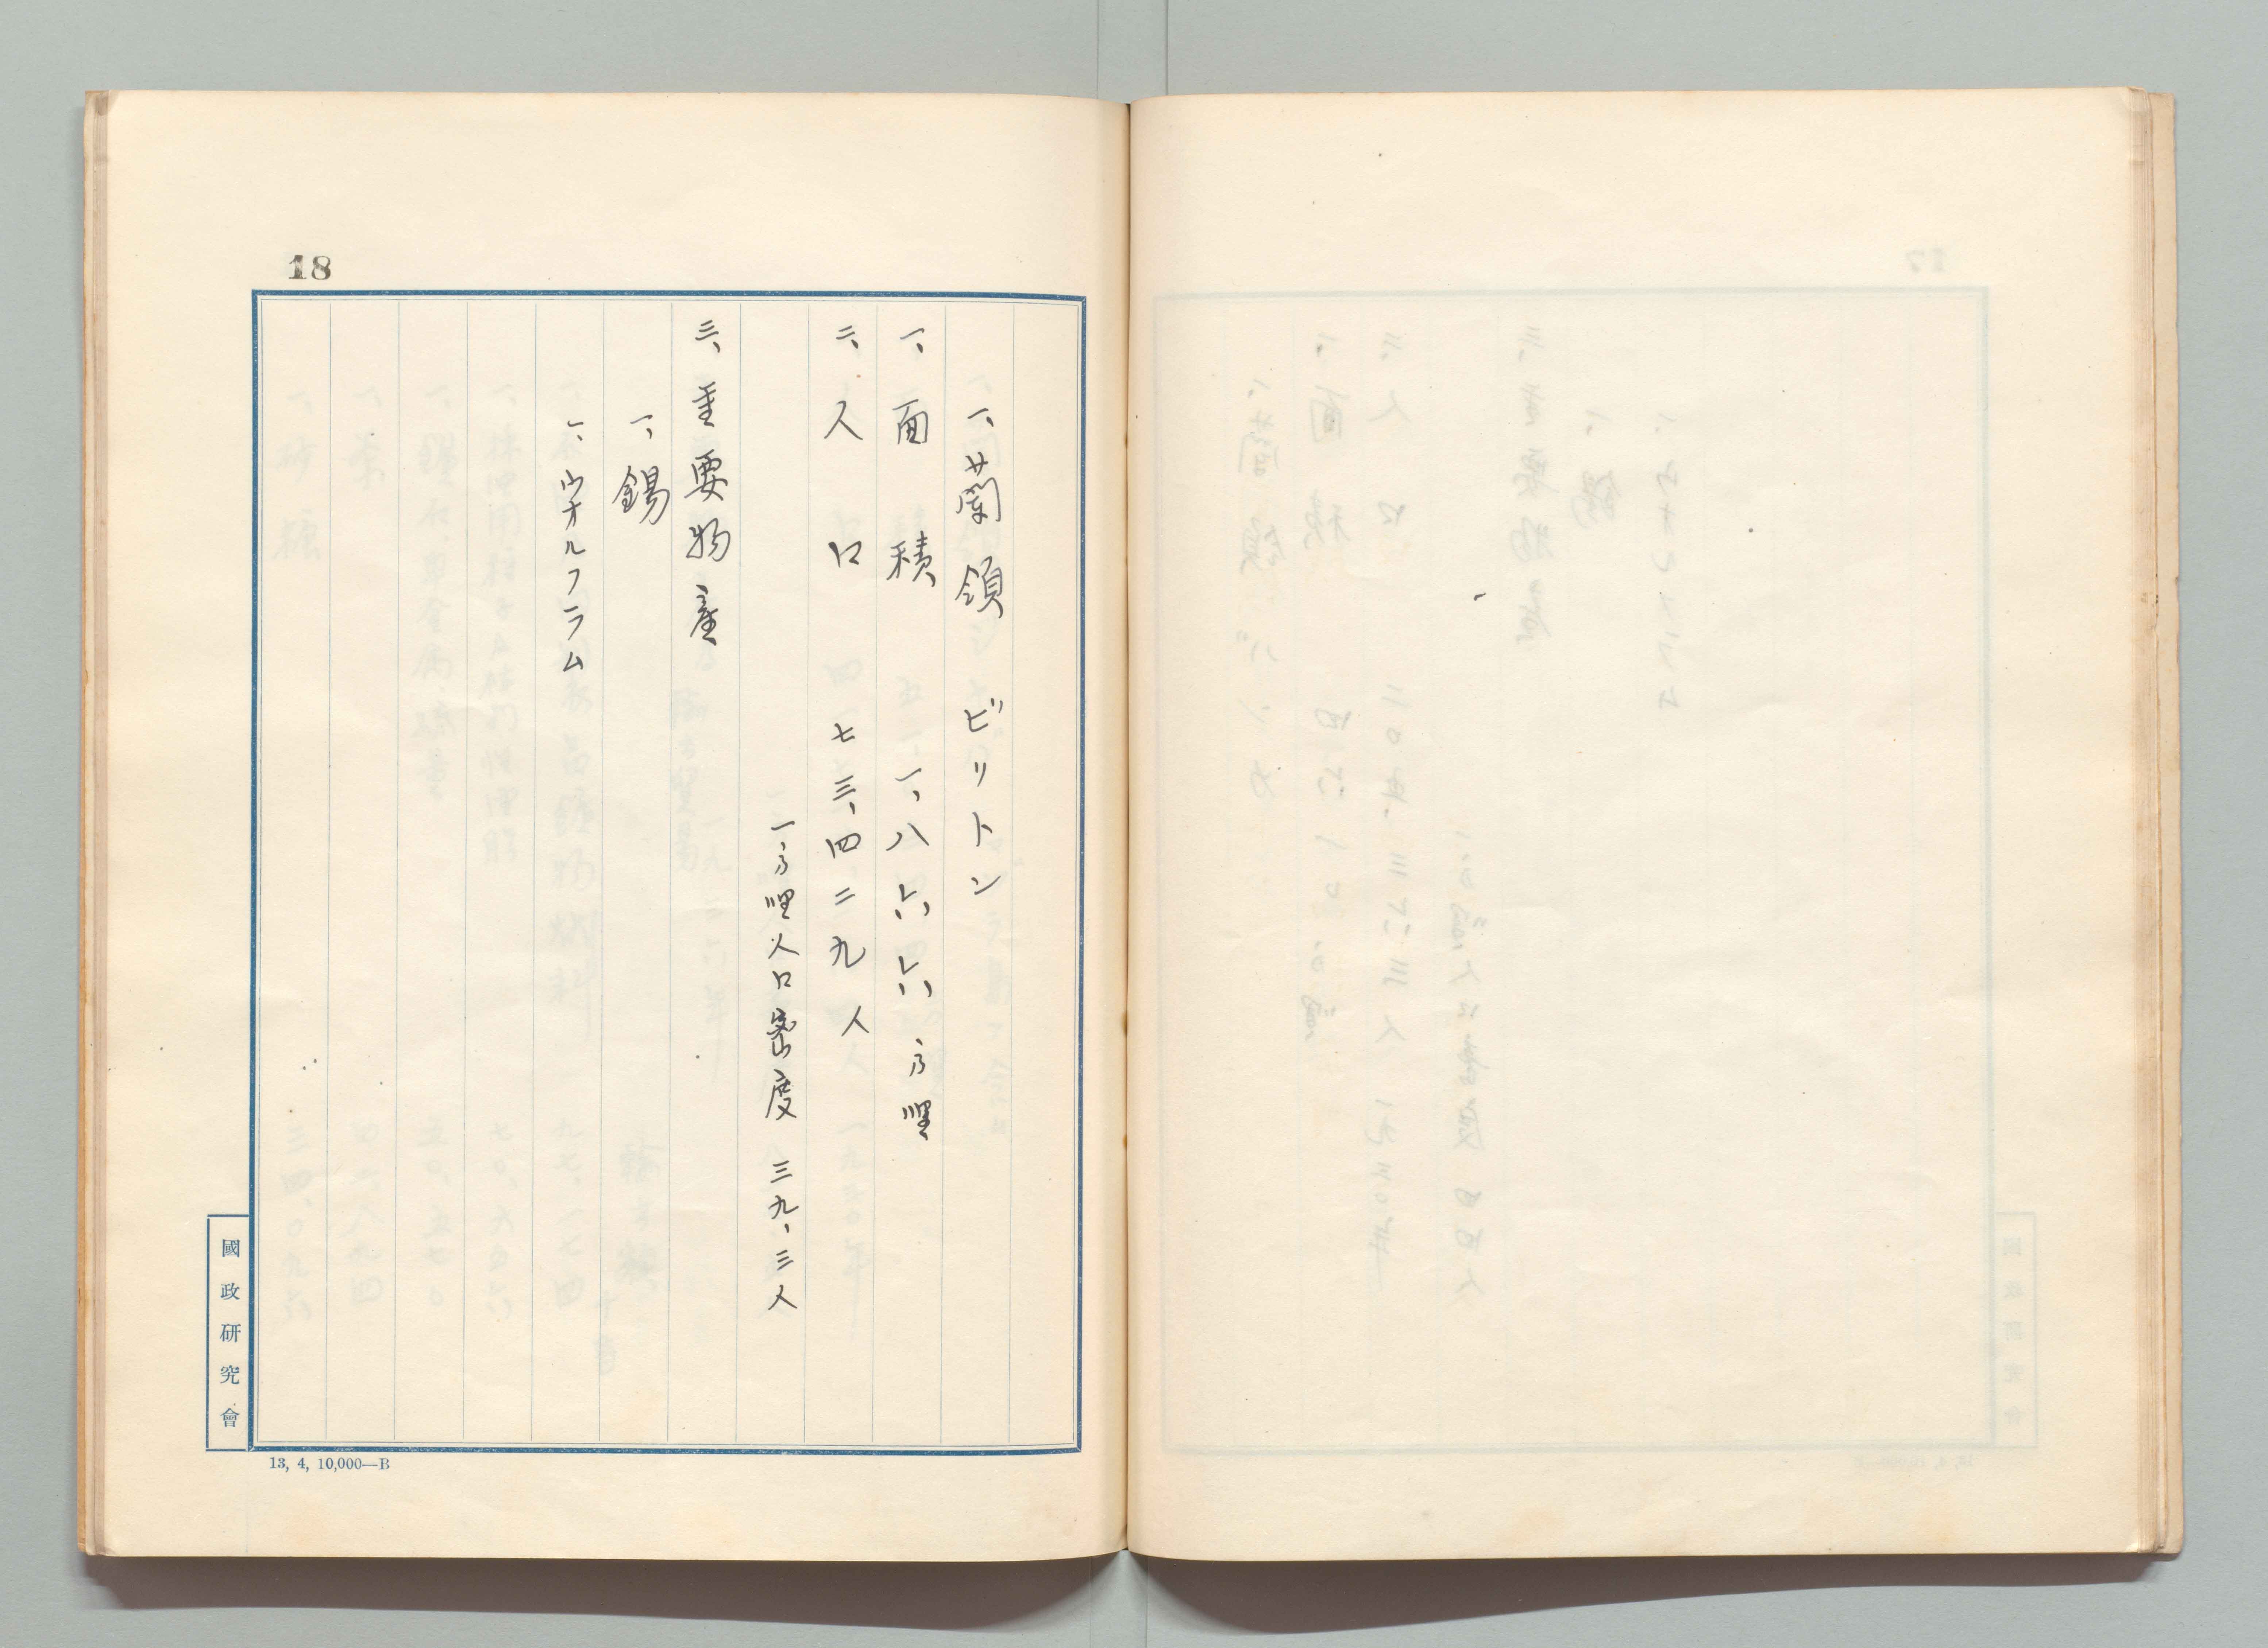 18
一、蘭領 ビリトン
一、面積 一、八六六方哩
二、人口 七三、四二九人
一方哩人口密度 三九、三人
三、重要物産
一、錫
一、ウオルフラム
國政研究會
13, 4, 10,000—B